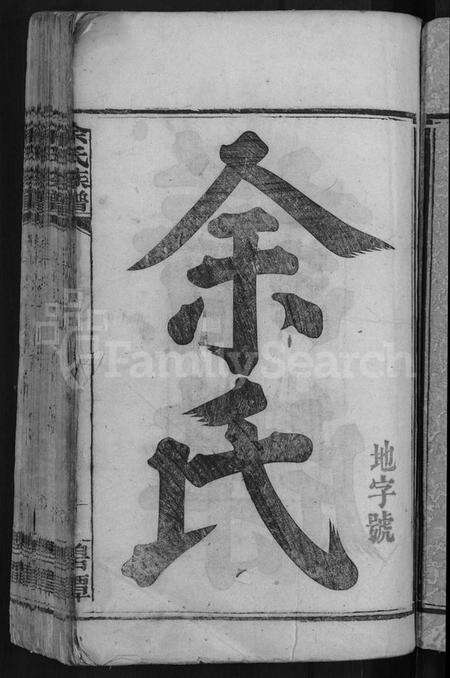 余氏
地字號
余氏族譜
FamilySearch